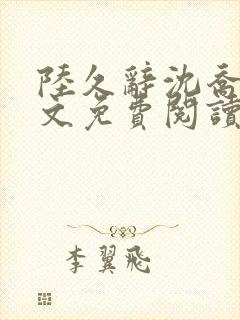 陸久辭沈喬
文免費閱讀
李翼飛